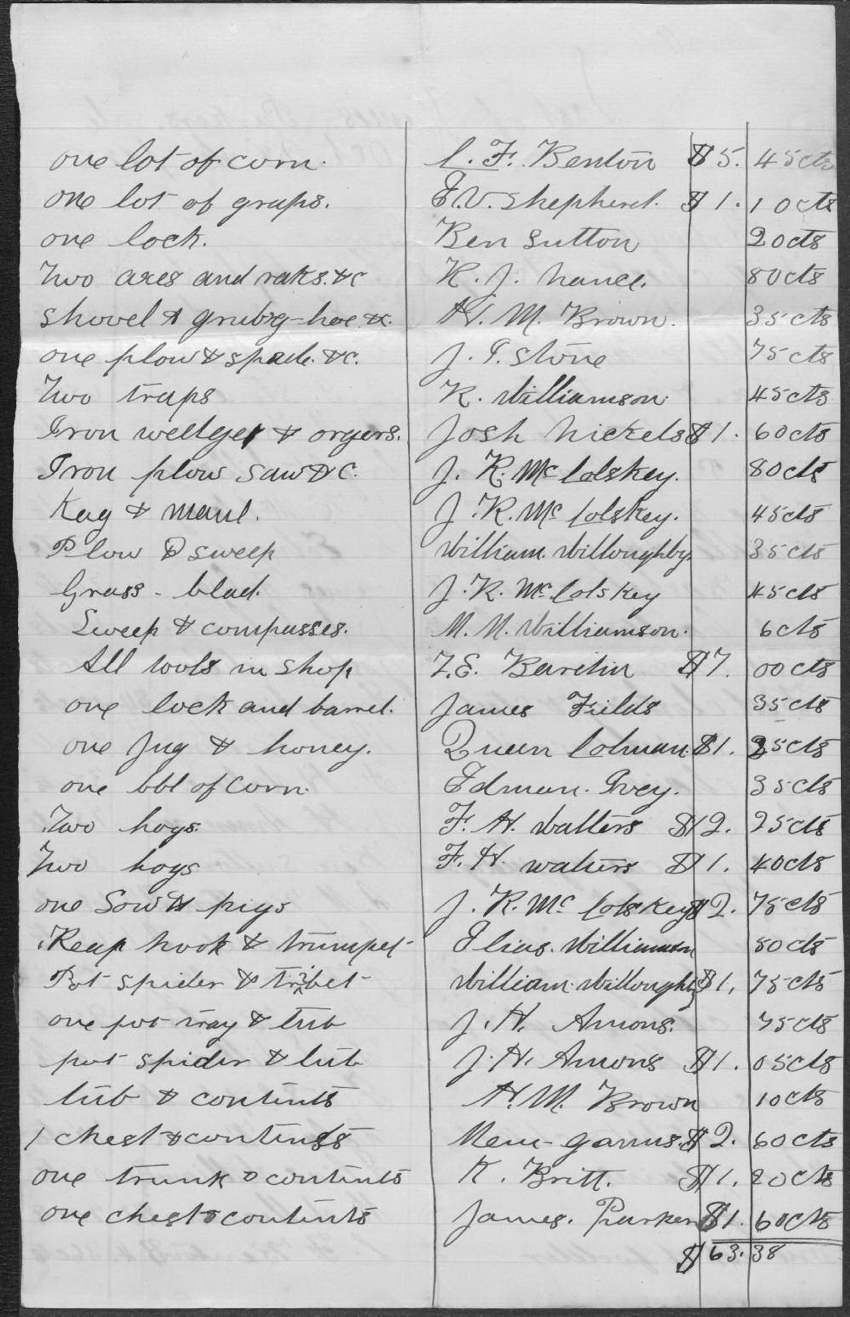 one lot of corn. C. F. Benton $5. 45cts
one lot of graps. E V. Shepherd. $1. 10cts
one lock. Ben Sutton 20cts
Two axes and raks. &c R. J. Nance. 80cts
Shovel & grub'g-hoe &c. H. M. Brown. 35cts
one plow & spade. &c. J. T. Stone 75cts
Two traps R. Williamson. 45cts
Iron & orgers. Josh Nickels $1. 60cts
Iron plow saw &c. J. R. McColskey. 80cts
Kag & maul. J. R. McColskey. 45cts
Plow & sweep William Willoughby. 35cts
Grass-blad. J. R. McColskey 45cts
Sweep & compasses. M. M. Williamson. 6cts
All tools in shop $7. 00cts
one lock and barrel. James Fields 35cts
one Jug & honey. Queen Colman. $1. 25cts
one bbl of corn. Edman. Ivey. 35cts
Two hogs. F. H. Walters $12. 25cts
Two hogs F. H. walters $1. 40cts
one Sow & pigs J. R. McColskey $2. 75cts
Reap hook & trumpet Elias. Williamson 50cts
Pot spider & tribet William. Willoughby $1. 75cts
one pot tray & tub J. H. Amons. 75cts
pot spider & tub J. H. Amons $1. 05cts
tub & contents H. M. Brown 10cts
1 chest & contents $2. 60cts
one trunk & contents K. Britt. $1. 20cts
one chest & contents James. Parker $1. 60cts
$63.38